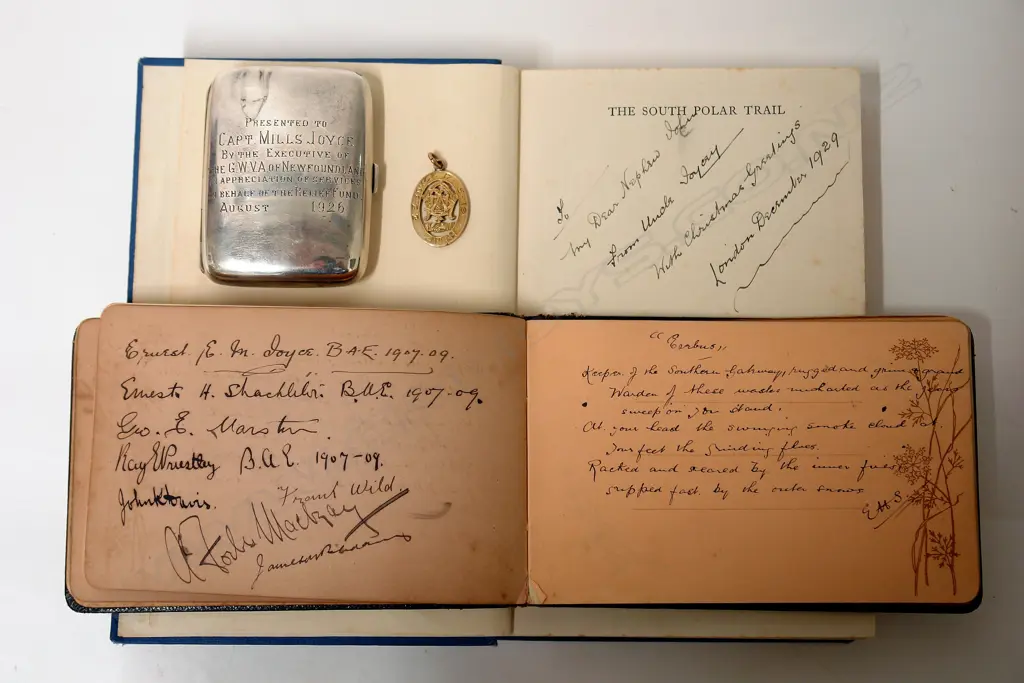 PRESENTED TO
CAPT MILLS JOYCE
BY THE EXECUTIVE OF
THE G.W.V.A OF NEWFOUNDLAND
APPRECIATION OF SERVICES
BEHALF OF THE RELIEF FUND
AUGUST 1926
THE SOUTH POLAR TRAIL
To
my Dear Nephew John
From Uncle Joycey
With Christmas Greetings
London December 1929
Ernest E. M. Joyce. B.A.E. 1907-09.
Ernest H. Shackleton B.A.E. 1907-09.
Geo. E. Marston
Ray E Priestley B.A.E. 1907-09.
John K Davis.
Frank Wild
A Forbes Mackay
"Erebus"
Keeper of the Southern Gateway, rugged and grim & grand
Warden of these wastes uncharted as the years
sweep on you stand.
At your head the swinging smoke cloud at
your feet the grinding floes.
Racked and seared by the inner fires
gripped fast by the outer snows
E H S